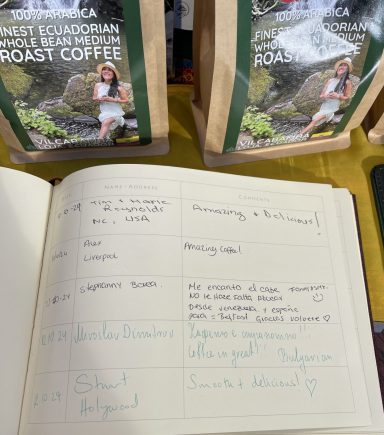 100% ARABICA
FINEST ECUADORIAN
WHOLE BEAN MEDIUM
ROAST COFFEE
VILCABAMBA
100% ARABICA
FINEST ECUADORIAN
WHOLE BEAN MEDIUM
ROAST COFFEE
VILCABAMBA
NAME + ADDRESS
COMMENTS
Tim + Marie
Reynolds
NC, USA
Amazing + Delicious!
Alex
Liverpool
Amazing Coffee!
Stephanny
Me encanto el cafe
No le hace falta azucar
Desde venezuela y españa
Gracias volvere ♡
12.10.24
Miroslav Dimitrov
Coffee in great!
Bulgarian
12.10.24
Stuart
Holywood
Smooth + delicious! ♡